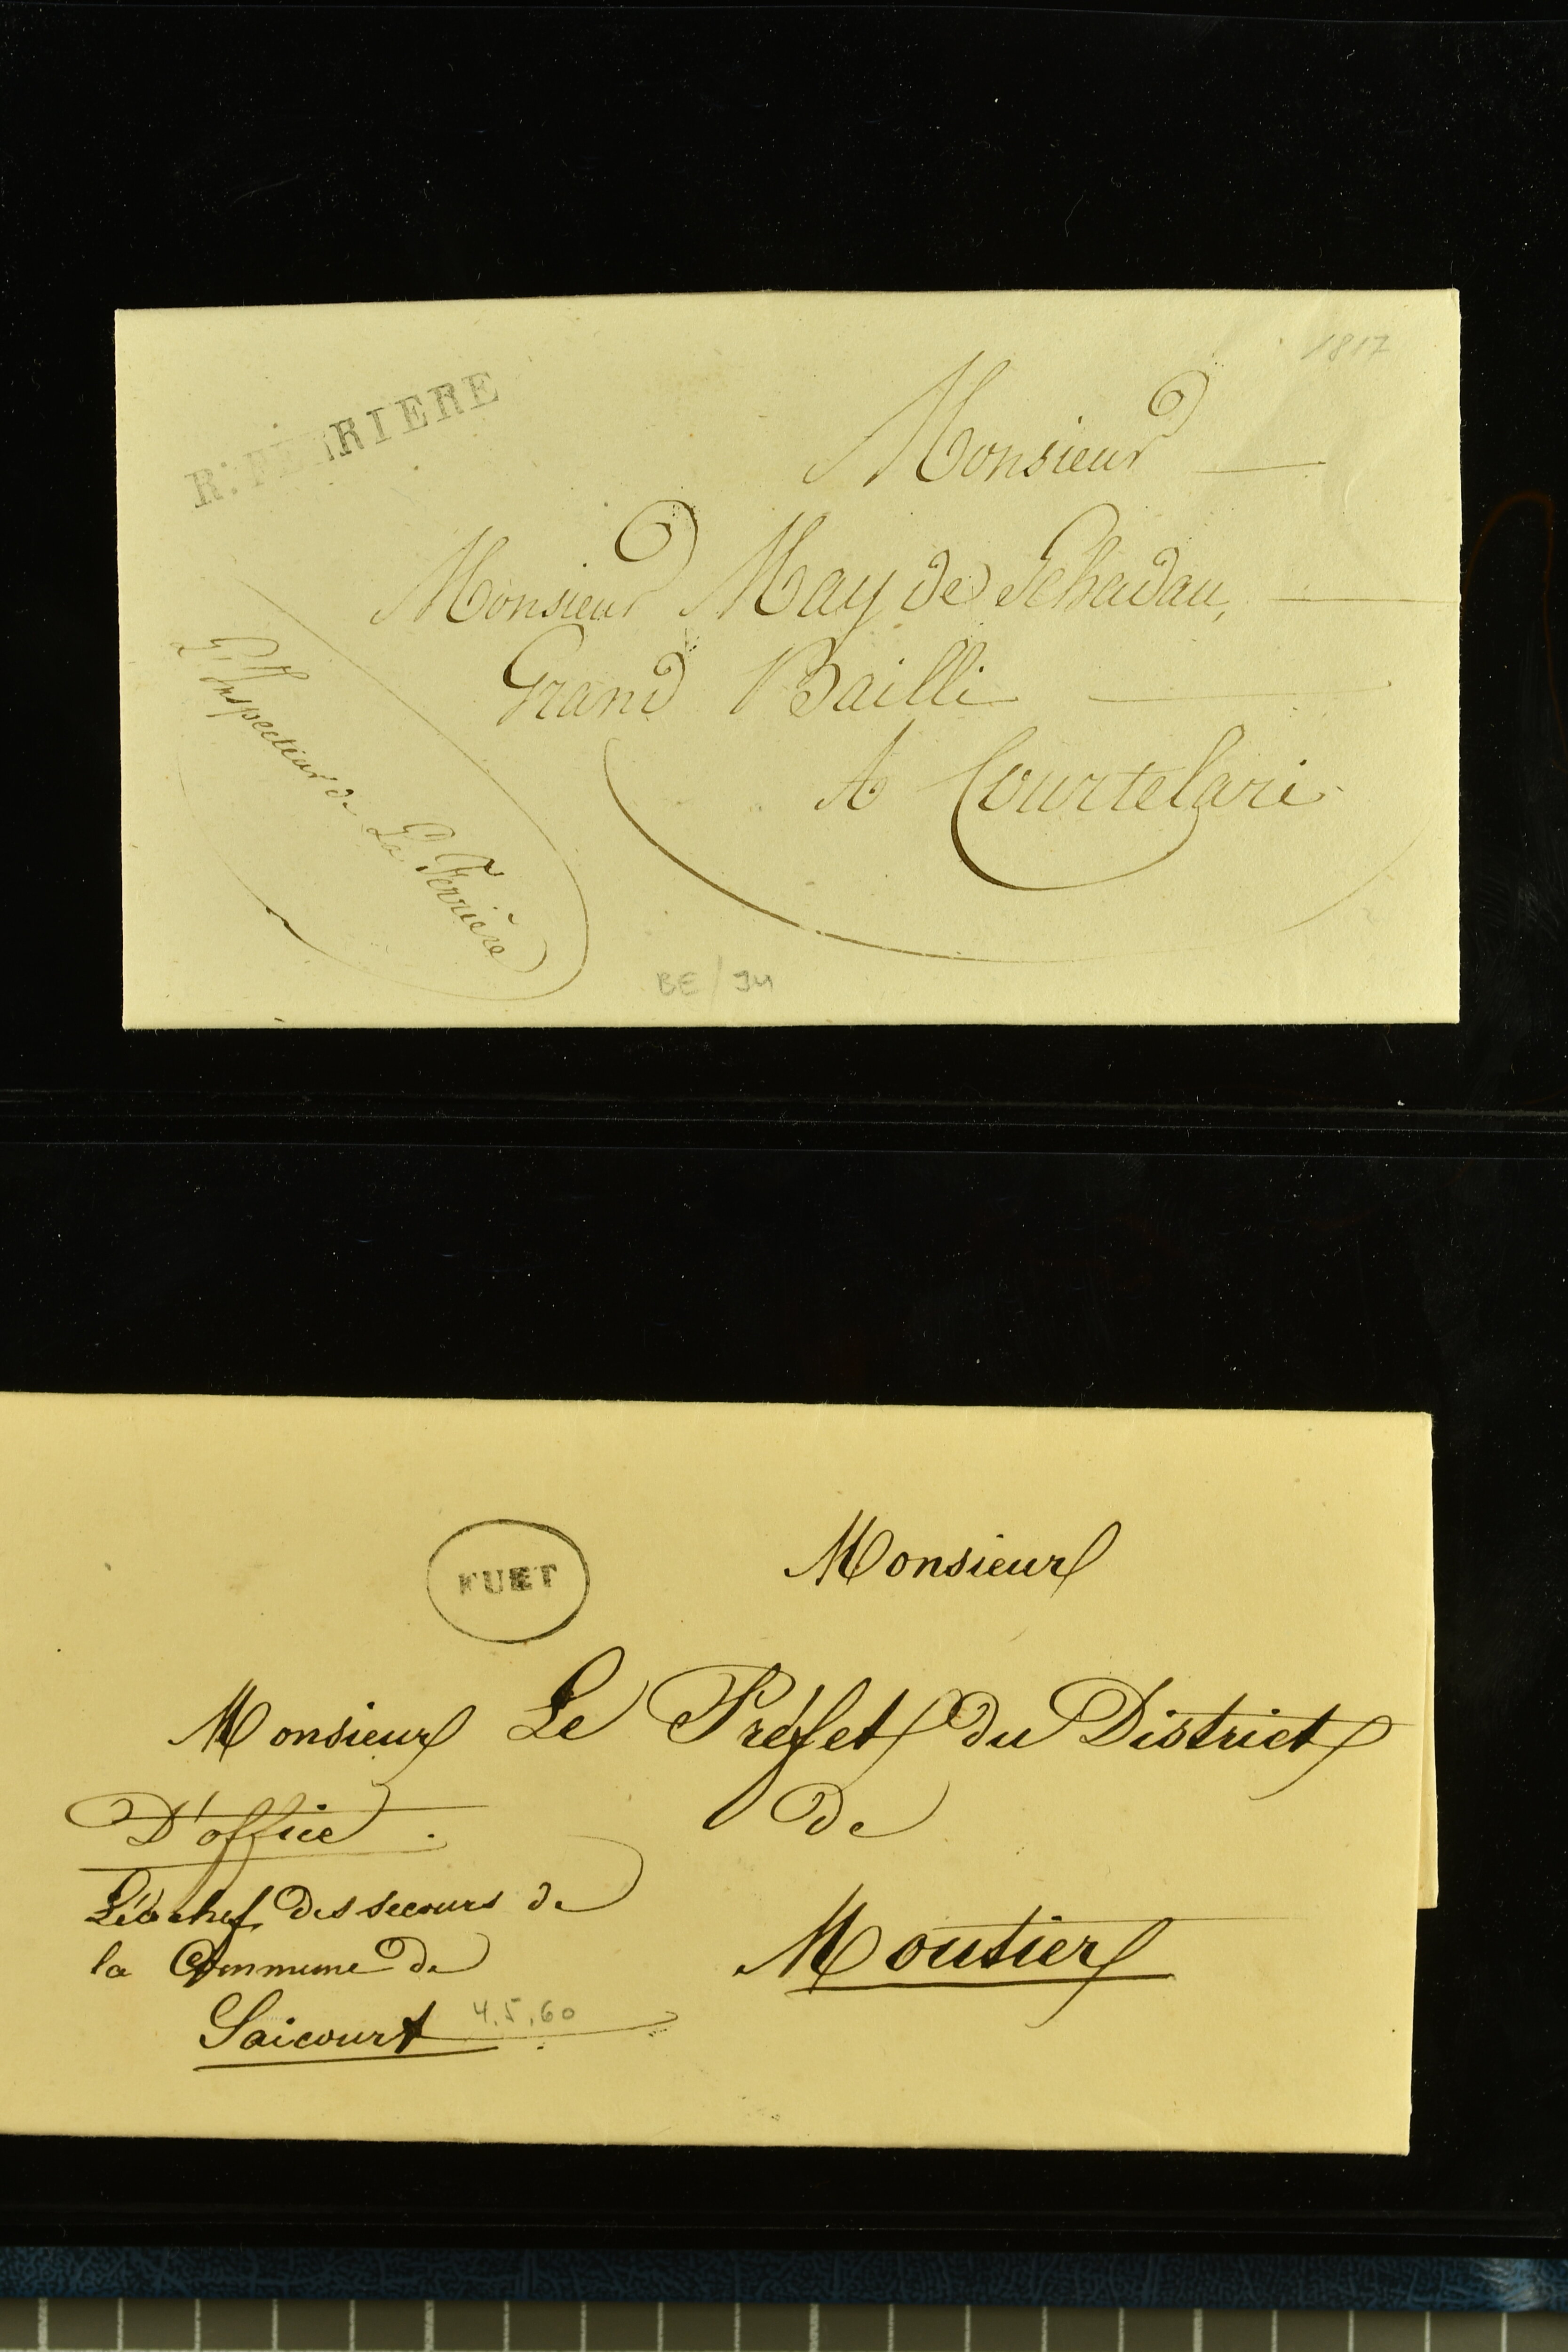 1817
R: FERRIERE
Monsieur
Monsieur May de Schadau,
Grand Bailli
A Courtelari
L'Inspecteur de La Ferrière
BE/94
FUET
Monsieur
Monsieur Le Préfet du District
de
Moutier
D'office
chef des secours de
la Commune de
Saicourt 4.5.60